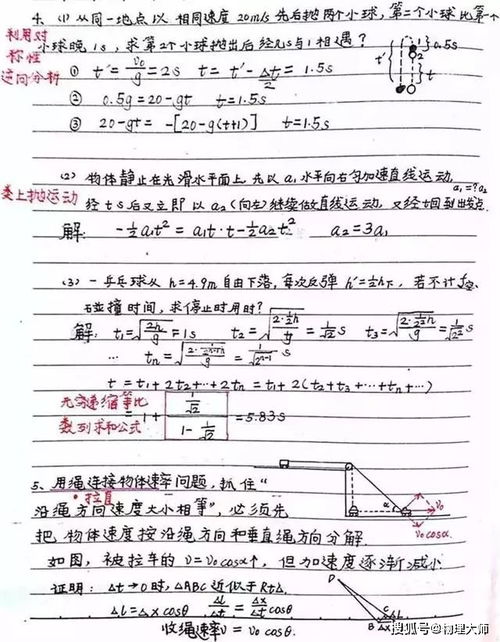 4. (1) 从同一地点以相同速度20m/s先后抛两个小球,第二个小球比第一个
利用对称性 逆向分析
小球晚1s,求第2个小球抛出后经几s与1相遇?
① t' = v₀/g = 2s t = t' - Δt/2 = 1.5s
② 0.5g = 20-gt t=1.5s
③ 20-gt = -[20-g(t+1)] t=1.5s
t' 1 2 0.5s t
(2) 物体静止在光滑水平面上,先以a₁水平向右匀加速直线运动,
a₁=?a₂
类上抛运动
经ts后又立即以a₂(向左)继续做直线运动,又经t回到出发点.
解: -½a₁t² = a₁t·t-½a₂t² a₂=3a₁
(3) 一乒乓球从h=4.9m自由下落,每次反弹h'=½h下,若不计f空、
碰撞时间,求停止时用时?
解: t₁=√(2h/g)=1s t₂=√(2·½h/g)=1/√2 s t₃=√(2·1/2²h/g)=1/√2² s
… tₙ=√(2·1/2ⁿ⁻¹h/g)=1/√2ⁿ⁻¹ s
t=t₁+2t₂+…+2tₙ=t₁+2(t₂+t₃+…+tₙ+…)
无穷递缩等比数列求和公式
= 1+ (1/√2)/(1-1/√2) =5.83s
5、用绳连接物体速率问题,抓住“
拉直
沿绳方向速度大小相等”,必须先
把物体速度按沿绳方向和垂直绳方向分解.
α v₀ v₀cosα
如图,被拉车的v=v₀cosα↑,但加速度逐渐减小
证明: Δt→0时,△ABC近似于Rt△
ΔL=Δxcosθ ΔL/Δt=Δx/Δt cosθ
收绳速率v=v₀cosθ.
D C ΔL B Δx
搜狐号@物理大师